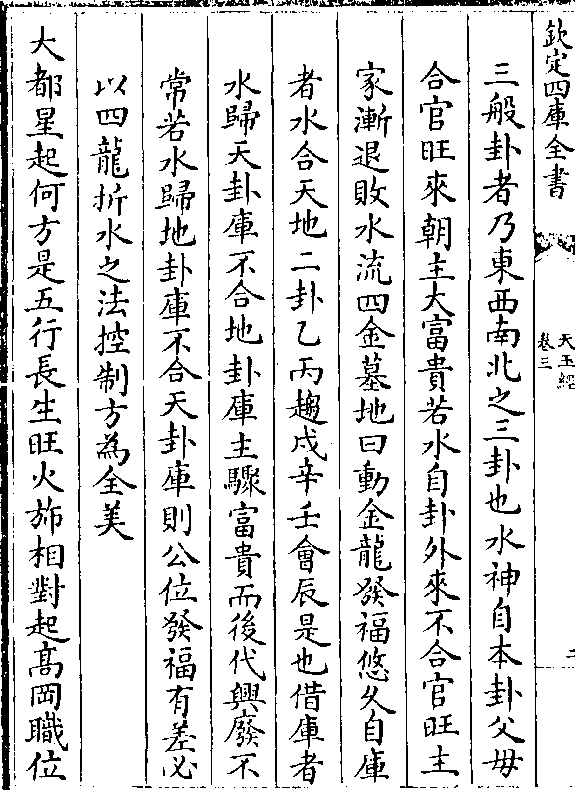 欽定四庫全書
天玉經
卷三
三般卦者乃東西南北之三卦也水神自本卦父母
合官旺來朝主大富貴若水自卦外來不合官旺主
家漸退敗水流四金墓地曰動金龍發福悠久自庫
者水合天地二卦乙丙趨戌辛壬會辰是也借庫者
水歸天卦庫不合地卦庫主驟富貴而後代興廢不
常若水歸地卦庫不合天卦庫則公位發福有差必
以四龍折水之法控制方為全美
大都星起何方是五行長生旺火斾相對起高岡職位